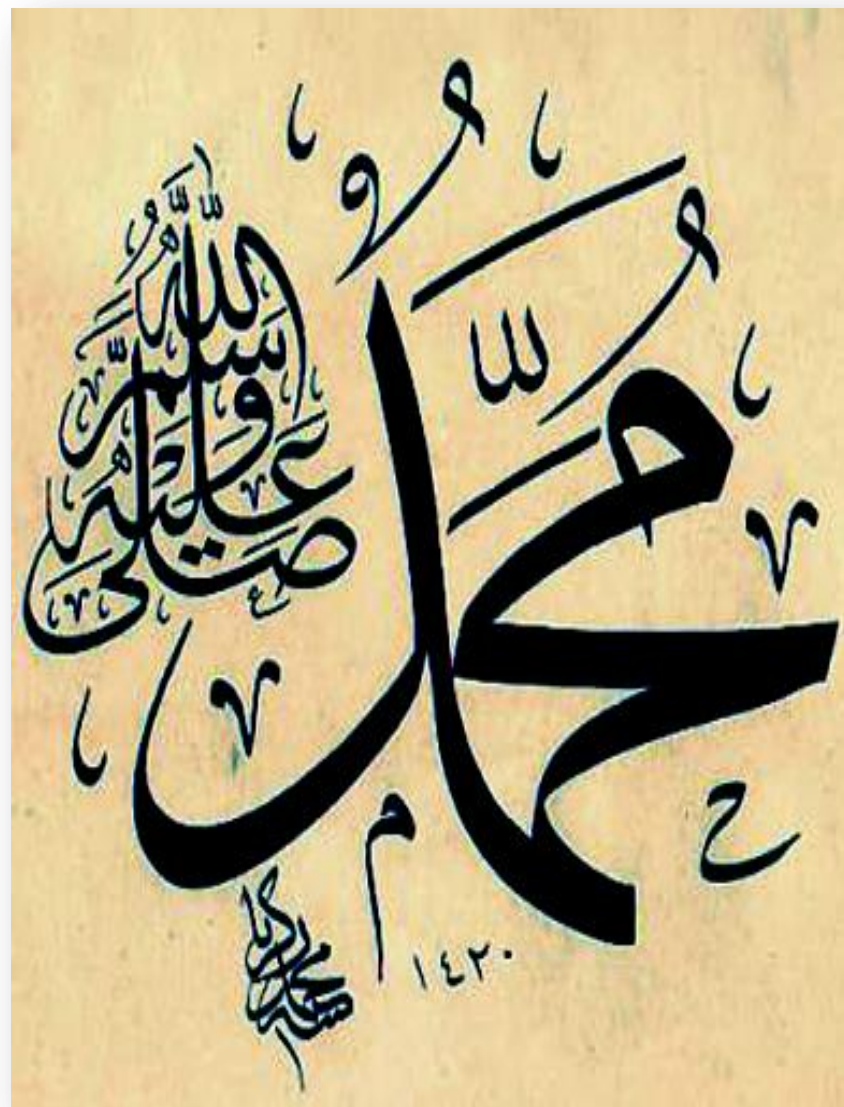 مُحَمَّدٌ
صَلَّى اللهُ عَلَيْهِ وَسَلَّمَ
١٤٢٠